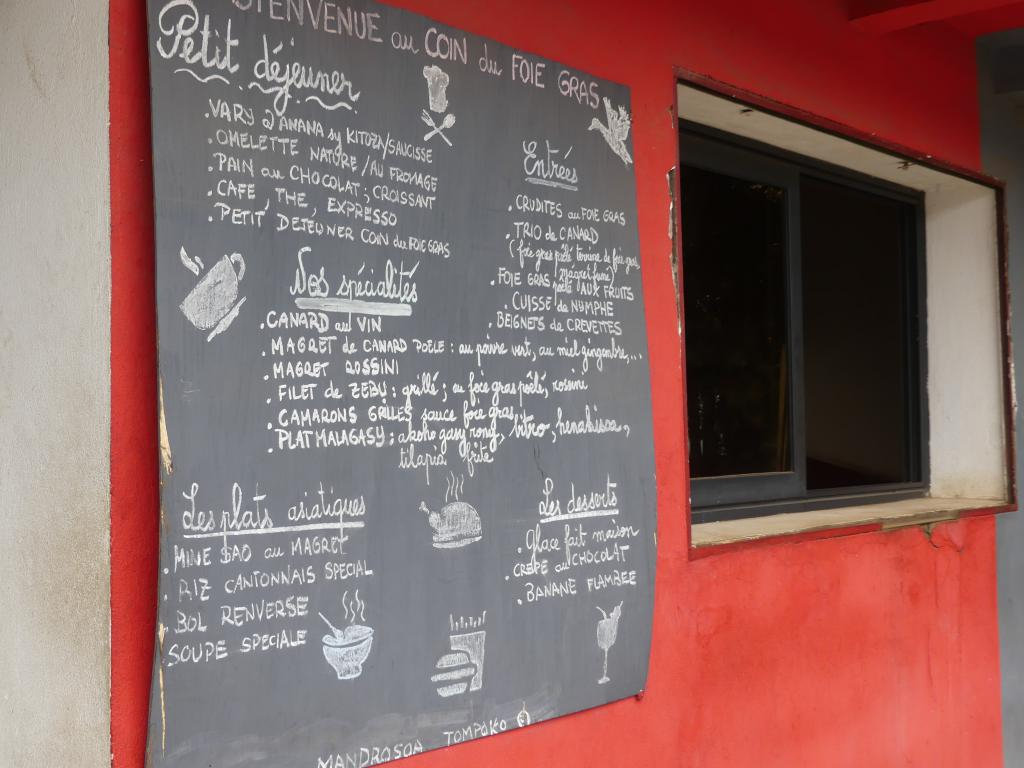 BIENVENUE au COIN du FOIE GRAS
Petit déjeuner
.VARY @ANANA sy KITOZA/SAUCISSE
.OMELETTE NATURE/AU FROMAGE
.PAIN au CHOCOLAT; CROISSANT
.CAFE, THE, EXPRESSO
.PETIT DEJEUNER COIN du FOIE GRAS
Entrées
.CRUDITES au FOIE GRAS
.TRIO de CANARD
(foie gras poêlé terrine de foie gras
magret fumé)
.FOIE GRAS poêlé AUX FRUITS
.CUISSE de NYMPHE
.BEIGNETS de CREVETTES
Nos spécialités
.CANARD au VIN
.MAGRET de CANARD POELE : au poivre vert, au miel gingembre,...
.MAGRET ROSSINI
.FILET de ZEBU : grillé; au foie gras poêlé, rossini
.CAMARONS GRILLES sauce foie gras,
.PLAT MALAGASY : akoho gasy rony, vitro, henakisoa,
tilapia frite
Les plats asiatiques
.MINE SAO au MAGRET
.RIZ CANTONNAIS SPECIAL
.BOL RENVERSE
SOUPE SPECIALE
Les desserts
.Glace fait maison
.CREPE au CHOCOLAT
.BANANE FLAMBEE
MANDROSOA TOMPOKO